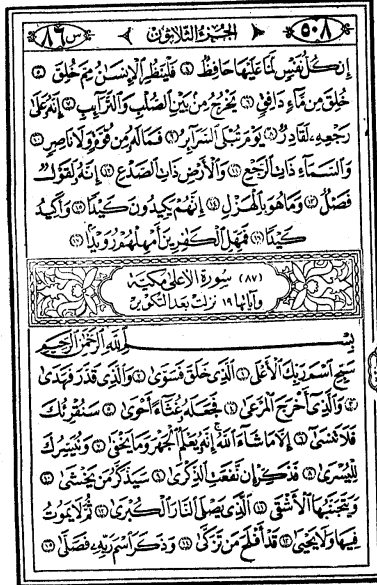 ٥٠٨ الجزء الثلاثون س ٨٦
إِن كُلُّ نَفْسٍ لَّمَّا عَلَيْهَا حَافِظٌ ۝٤ فَلْيَنظُرِ الْإِنسَٰنُ مِمَّ خُلِقَ ۝٥
خُلِقَ مِن مَّاءٍ دَافِقٍ ۝٦ يَخْرُجُ مِن بَيْنِ الصُّلْبِ وَالتَّرَائِبِ ۝٧ إِنَّهُ عَلَىٰ
رَجْعِهِ لَقَادِرٌ ۝٨ يَوْمَ تُبْلَى السَّرَائِرُ ۝٩ فَمَا لَهُ مِن قُوَّةٍ وَلَا نَاصِرٍ ۝١٠
وَالسَّمَاءِ ذَاتِ الرَّجْعِ ۝١١ وَالْأَرْضِ ذَاتِ الصَّدْعِ ۝١٢ إِنَّهُ لَقَوْلٌ
فَصْلٌ ۝١٣ وَمَا هُوَ بِالْهَزْلِ ۝١٤ إِنَّهُمْ يَكِيدُونَ كَيْدًا ۝١٥ وَأَكِيدُ
كَيْدًا ۝١٦ فَمَهِّلِ الْكَٰفِرِينَ أَمْهِلْهُمْ رُوَيْدًا ۝١٧
(٨٧) سورة الأعلى مكية
وآياتها ١٩ نزلت بعد التكوير
بِسْمِ اللَّهِ الرَّحْمَٰنِ الرَّحِيمِ
سَبِّحِ اسْمَ رَبِّكَ الْأَعْلَى ۝١ الَّذِي خَلَقَ فَسَوَّىٰ ۝٢ وَالَّذِي قَدَّرَ فَهَدَىٰ
۝٣ وَالَّذِي أَخْرَجَ الْمَرْعَىٰ ۝٤ فَجَعَلَهُ غُثَاءً أَحْوَىٰ ۝٥ سَنُقْرِئُكَ
فَلَا تَنسَىٰ ۝٦ إِلَّا مَا شَاءَ اللَّهُ إِنَّهُ يَعْلَمُ الْجَهْرَ وَمَا يَخْفَىٰ ۝٧ وَنُيَسِّرُكَ
لِلْيُسْرَىٰ ۝٨ فَذَكِّرْ إِن نَّفَعَتِ الذِّكْرَىٰ ۝٩ سَيَذَّكَّرُ مَن يَخْشَىٰ ۝١٠
وَيَتَجَنَّبُهَا الْأَشْقَى ۝١١ الَّذِي يَصْلَى النَّارَ الْكُبْرَىٰ ۝١٢ ثُمَّ لَا يَمُوتُ
فِيهَا وَلَا يَحْيَىٰ ۝١٣ قَدْ أَفْلَحَ مَن تَزَكَّىٰ ۝١٤ وَذَكَرَ اسْمَ رَبِّهِ فَصَلَّىٰ ۝١٥